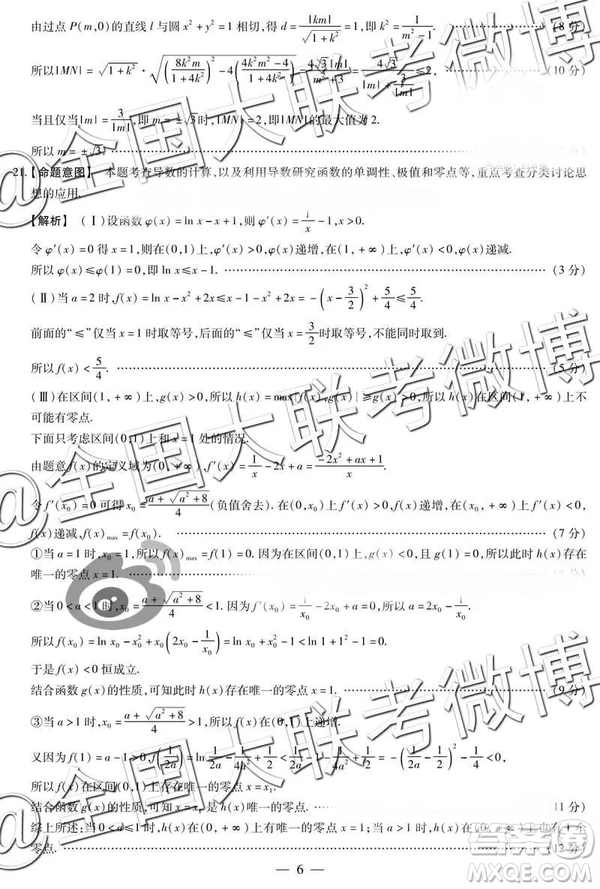 由过点 P(m,0)的直线 l 与圆 x²+y²=1 相切,得 d=|km|/√(1+k²)=1,即 k²=1/(m²-1). (8 分)
所以|MN|=√(1+k²)·√((8k²m/(1+4k²))²-4( =4√3|m|/(m²+3)=4√3/(|m|+3/|m|)≤2, (10 分)
当且仅当|m|=3/|m|,即 m=±√3时,|MN|=2,即|MN|的最大值为 2.
所以 m=±√3.
21.【命题意图】 本题考查导数的计算,以及利用导数研究函数的单调性、极值和零点等,重点考查分类讨论思
想的应用.
【解析】 (Ⅰ)设函数 φ(x)=ln x-x+1,则 φ′(x)=1/x-1,x>0.
令 φ′(x)=0 得 x=1,则在(0,1)上,φ′(x)>0,φ(x)递增,在(1,+∞)上,φ′(x)<0,φ(x)递减.
所以 φ(x)≤φ(1)=0,即 ln x≤x-1. (3 分)
(Ⅱ)当 a=2 时,f(x)=ln x-x²+2x≤x-1-x²+2x=-(x-3/2)²+5/4≤5/4.
前面的“≤”仅当 x=1 时取等号,后面的“≤”仅当 x=3/2时取等号,不能同时取到.
所以 f(x)<5/4.
(Ⅲ)在区间(1,+∞)上,g(x)>0,所以 h(x)=max{f(x),g(x)}≥g(x)>0,所以 h(x)在区间(1,+∞)上不
可能有零点.
下面只考虑区间(0,1)上和 x=1 处的情况.
由题意 f(x)的定义域为(0,+∞),f′(x)=1/x-2x+a=(-2x²+ax+1)/x.
令 f′(x₀)=0 可得 x₀=(a+√(a²+8))/4(负值舍去). 在(0,x₀)上 f′(x)>0,f(x)递增,在(x₀,+∞)上 f′(x)<0,
f(x)递减,f(x)max=f(x₀). (7 分)
①当 a=1 时,x₀=1,所以 f(x)max=f(1)=0. 因为在区间(0,1)上,g(x)<0,且 g(1)=0,所以此时 h(x)存在
唯一的零点 x=1.
②当 0<a<1 时,x₀=(a+√(a²+8))/4<1. 因为 f′(x₀)=1/x₀-2x₀+a=0,所以 a=2x₀-1/x₀.
所以 f(x₀)=ln x₀-x₀²+x₀(2x₀-1/x₀)=ln x₀+x₀²-1<ln 1+1²-1=0.
于是 f(x)<0 恒成立.
结合函数 g(x)的性质,可知此时 h(x)存在唯一的零点 x=1. (9 分)
③当 a>1 时,x₀=(a+√(a²+8))/4>1,所以 f(x)在(0,1)上递增.
又因为 f(1)=a-1>0,f(1/2a)=ln 1/2a-(1/2a)²+1/2<1/2a-1-(1/2a)²+1/2=-(1/2a-1/2)²-1/4<0,
所以 f(x)在区间(0,1)上存在唯一的零点 x=x₁.
结合函数 g(x)的性质,可知 h(x)存在唯一的零点. (11 分)
综上所述:当 0<a≤1 时,h(x)在(0,+∞)上有唯一的零点 x=1;当 a>1 时,h(x)在(0,+∞)上也有 1 个
零点. (12 分)
— 6 —
@全国大联考微博
@全国大联考微博
@全国大联考微博